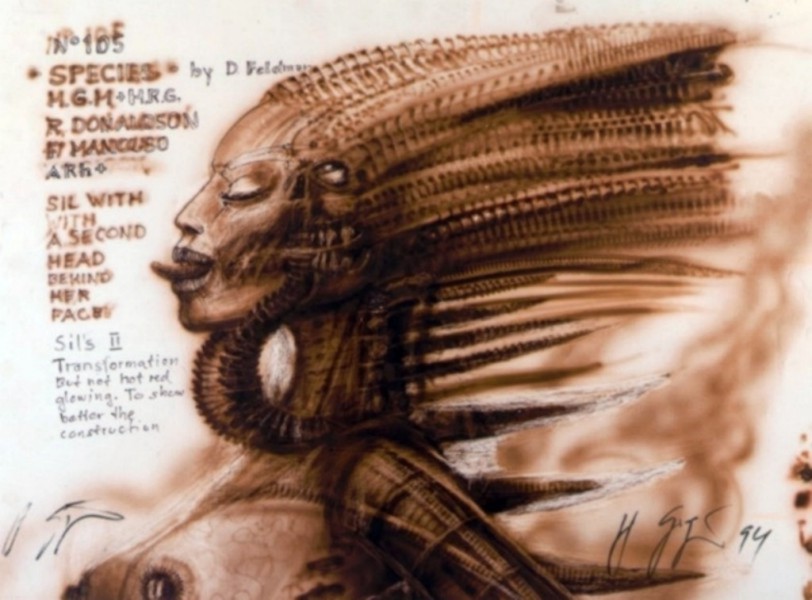 Nº105
SPECIES by D. Feldman
M.G.M + H.R.G.
R DONALDSON
F MANCUSO
ARh+
SIL WITH
WITH
A SECOND
HEAD
BEHIND
HER
FACE
Sil's II
Transformation
But not hot red
glowing. To show
better the
construction
94